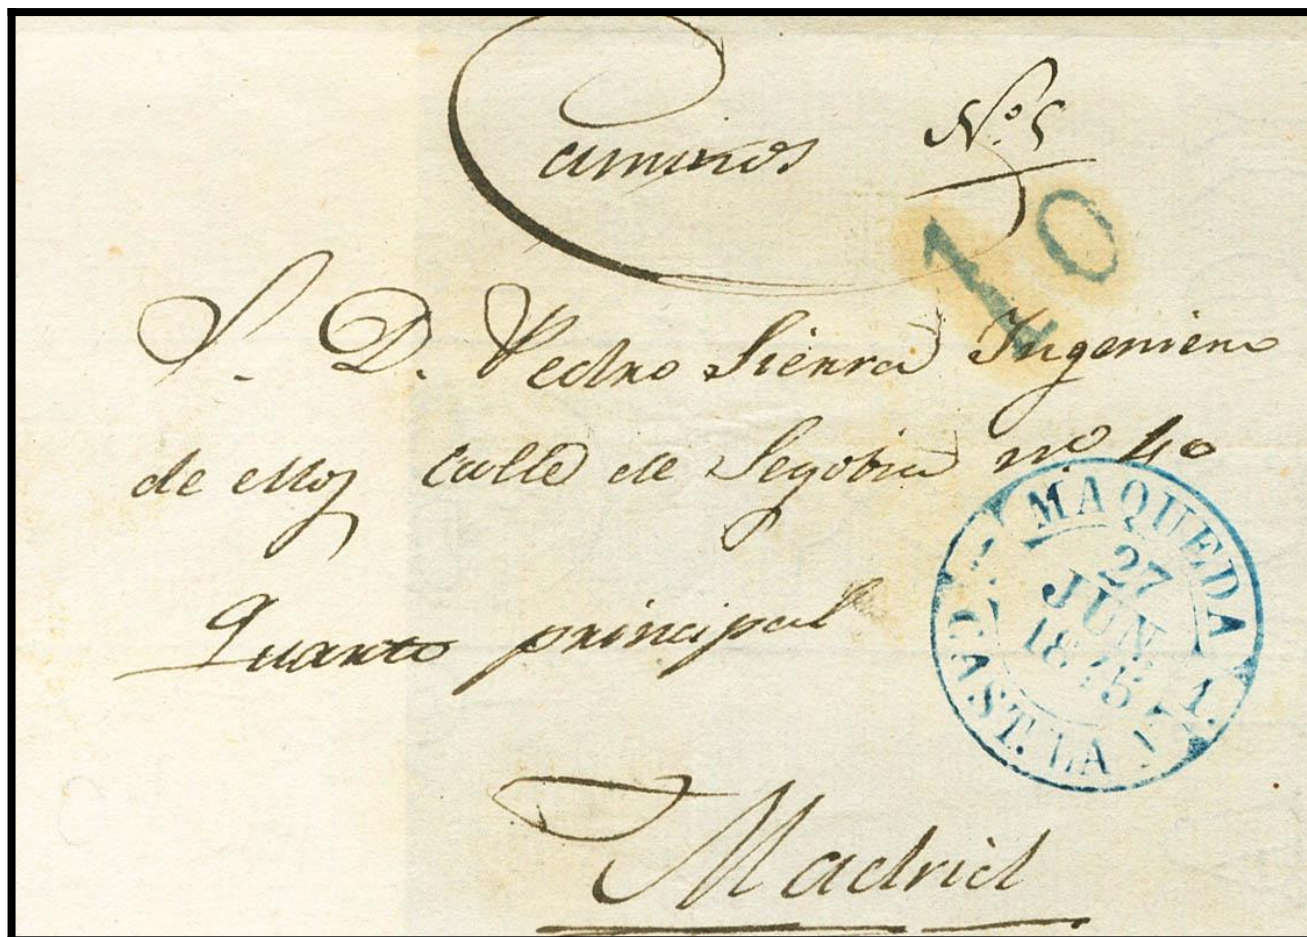 Caminos Nº 5
10
S. D. Pedro Sierra Ingeniero
de ellos calle de Segobia nº 40
Quarto principal
MAQUEDA
27
JUN
1845
CAST. LA N.
Madrid